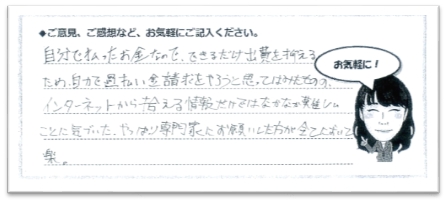 ◆ご意見、ご感想など、お気軽にご記入ください。
自分で払ったお金なので、できるだけ出費を抑える
ため自力で過払い金請求をやろうと思ってはみたものの、
インターネットから拾える情報だけではなかなか難しい
ことに気づいた。やっぱり専門家にお願いした方が全てにおいて
楽。
お気軽に!